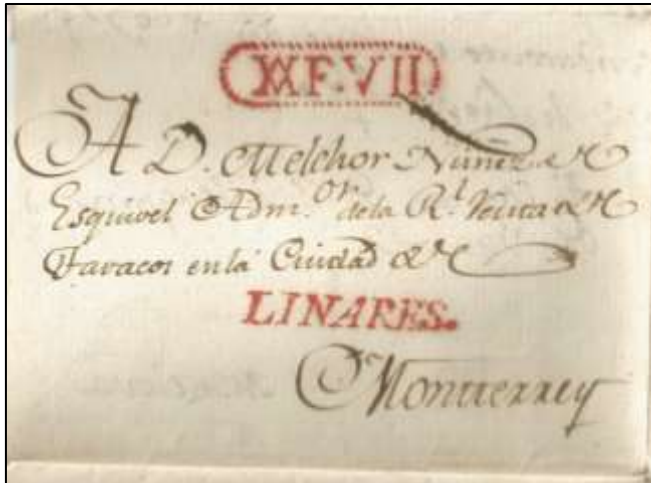 XXF.VII
A D. Melchor Nuñez de
Esquivel Adm.or de la R.l Renta de
Tavacos en la Ciudad de
LINARES.
Monterrey